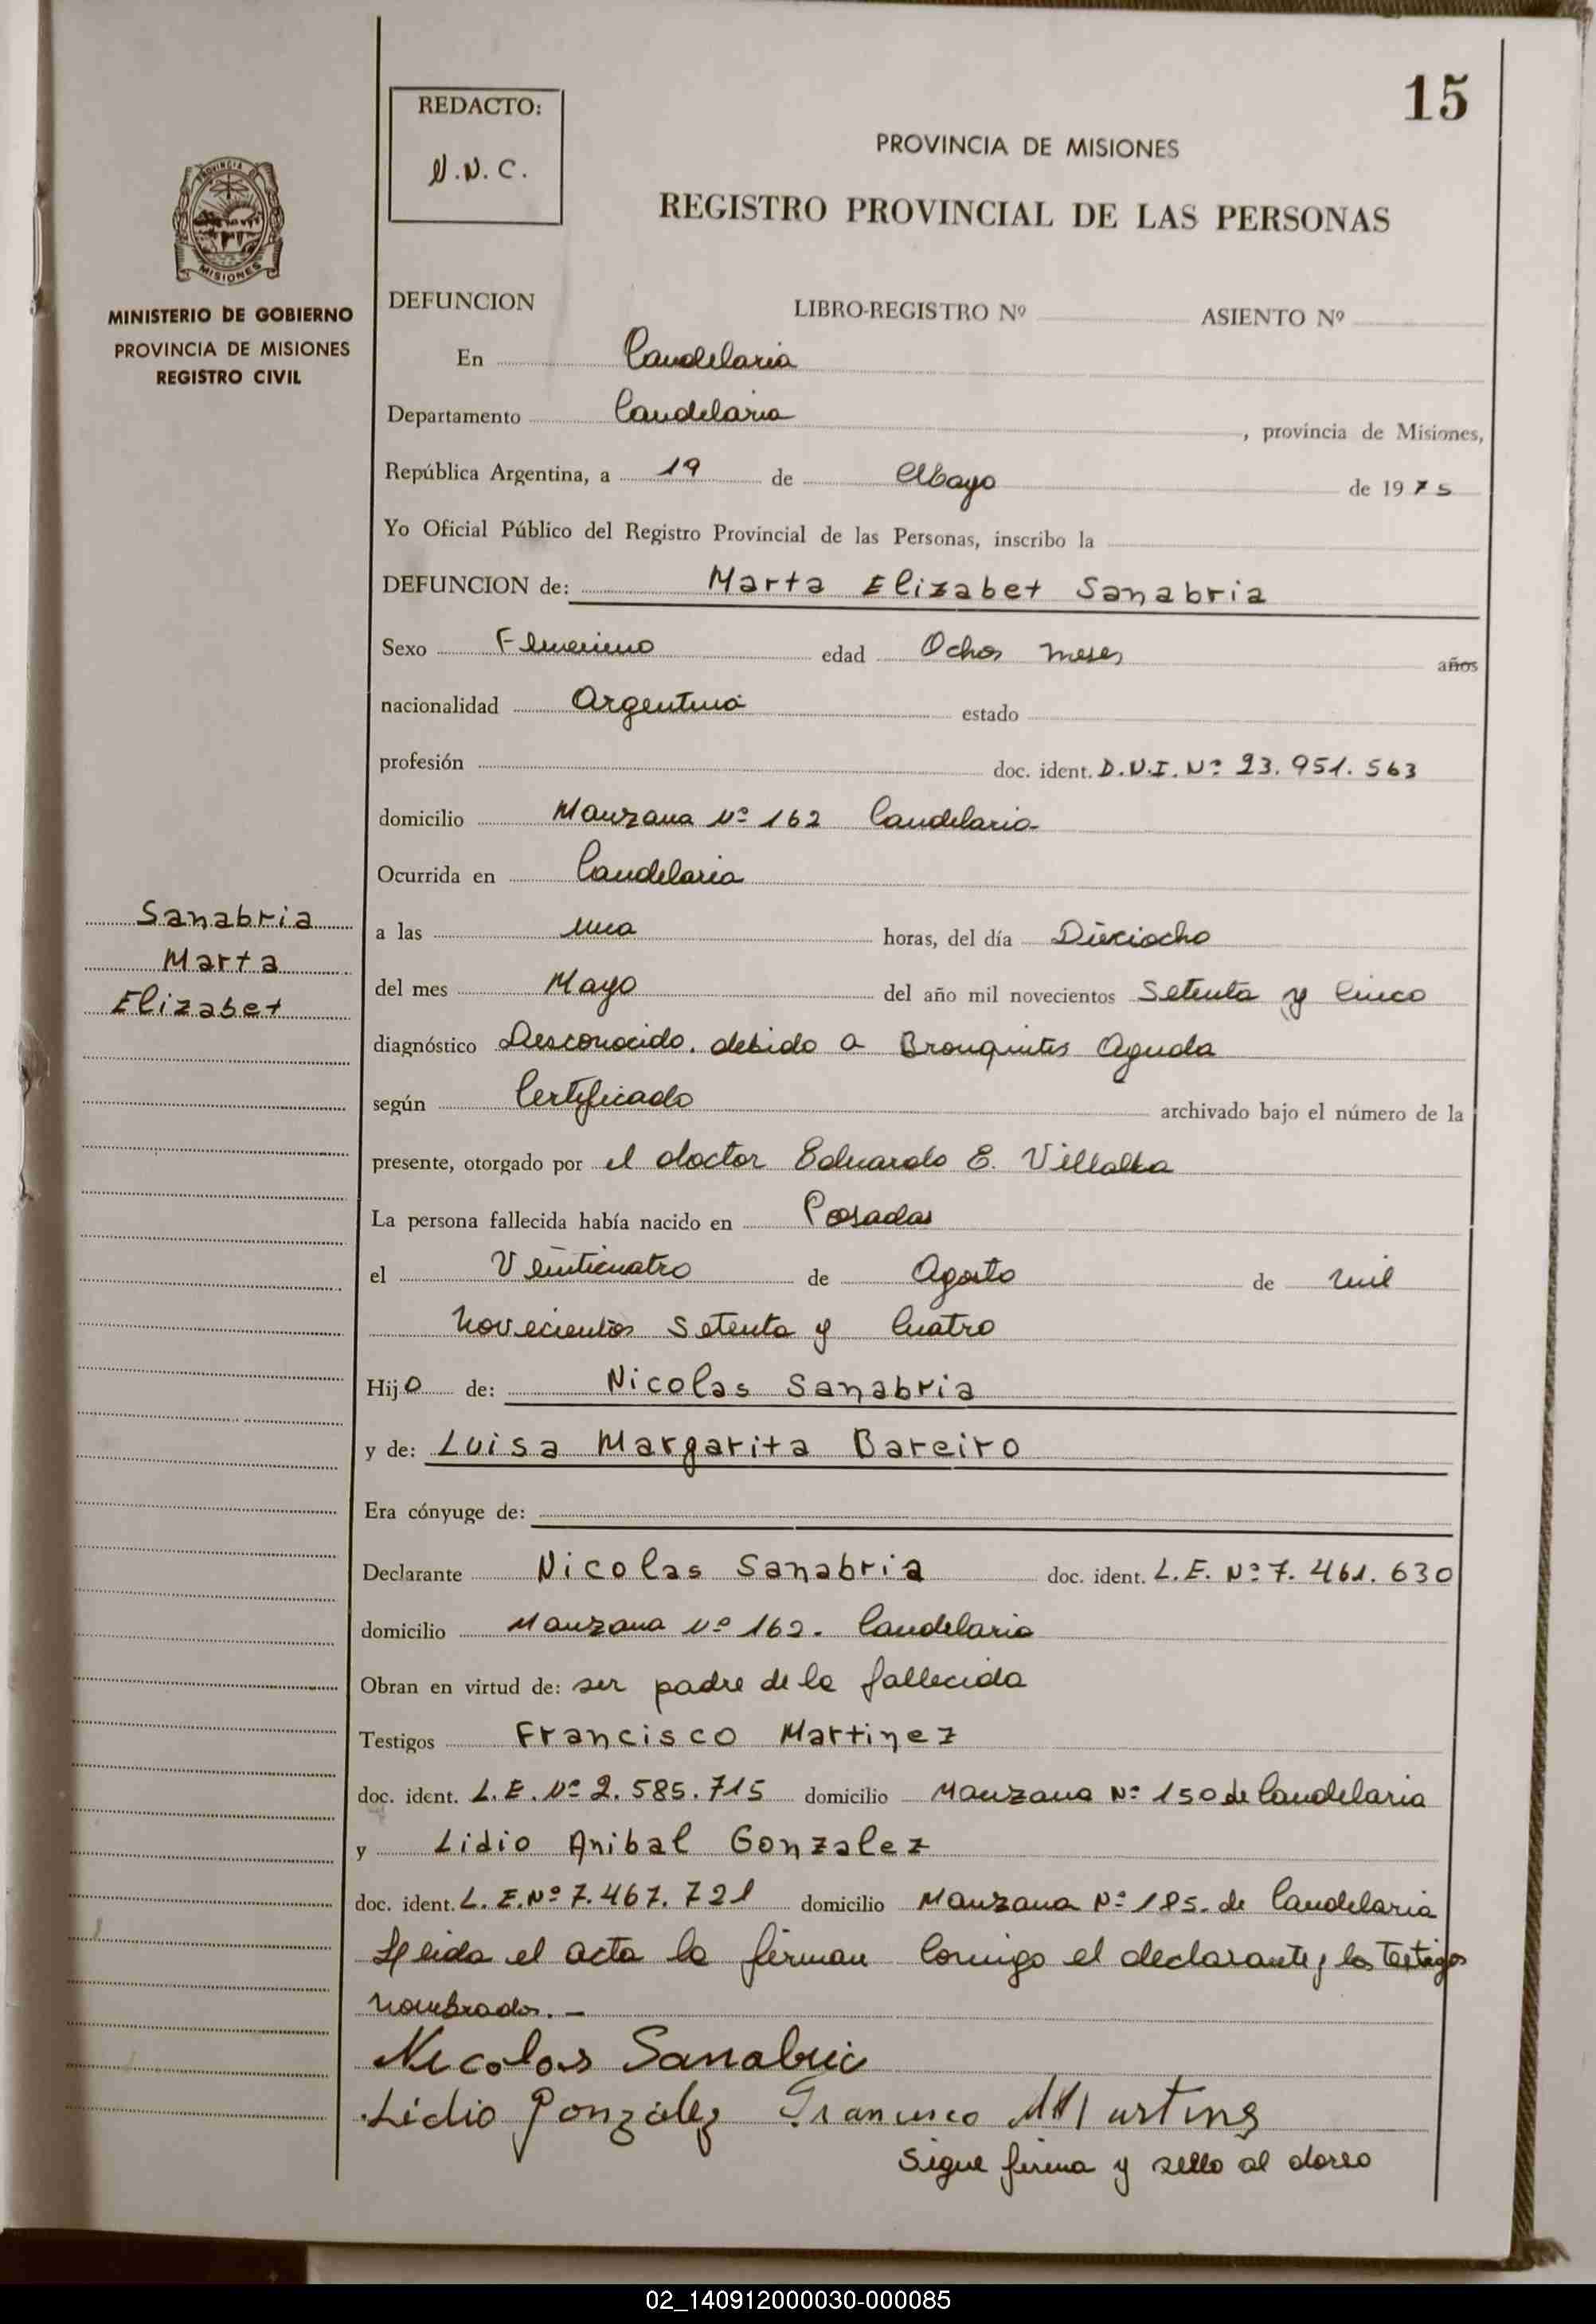 15
REDACTO:
N.N.C.
PROVINCIA DE MISIONES
REGISTRO PROVINCIAL DE LAS PERSONAS
PROVINCIA D
MISIONES
MINISTERIO DE GOBIERNO
PROVINCIA DE MISIONES
REGISTRO CIVIL
DEFUNCION LIBRO-REGISTRO Nº ASIENTO Nº
En Candelaria
Departamento Candelaria, provincia de Misiones,
República Argentina, a 19 de Mayo de 1975
Yo Oficial Público del Registro Provincial de las Personas, inscribo la
DEFUNCION de: Marta Elizabet Sanabria
Sexo Femenino edad Ochos meses años
nacionalidad Argentina estado
profesión doc. ident. D.N.I. Nº 23.951.563
domicilio Manzana Nº 162 Candelaria
Ocurrida en Candelaria
Sanabria
Marta
Elizabet
a las una horas, del día Dieciocho
del mes Mayo del año mil novecientos Setenta y Cinco
diagnóstico Desconocido. debido a Bronquites Aguda
según Certificado archivado bajo el número de la
presente, otorgado por el doctor Eduardo E. Villalba
La persona fallecida había nacido en Posadas
el Veinticuatro de Agosto de mil
novecientos Setenta y Cuatro
Hijo de: Nicolas Sanabria
y de: Luisa Margarita Bareiro
Era cónyuge de:
Declarante Nicolas Sanabria doc. ident. L.E. Nº 7.461.630
domicilio Manzana Nº 162. Candelaria
Obran en virtud de: ser padre de la fallecida
Testigos Francisco Martinez
doc. ident. L.E. Nº 2.585.715 domicilio Manzana Nº 150 de Candelaria
y Lidio Anibal Gonzalez
doc. ident. L.E. Nº 7.467.721 domicilio Manzana Nº 185. de Candelaria
Leida el acta la firman Comigo el declarante y los Testigos
nombrados. —
Nicolas Sanabria
Lidio Gonzalez Francisco Martines
Sigue firma y sello al dorso
02_140912000030-000085